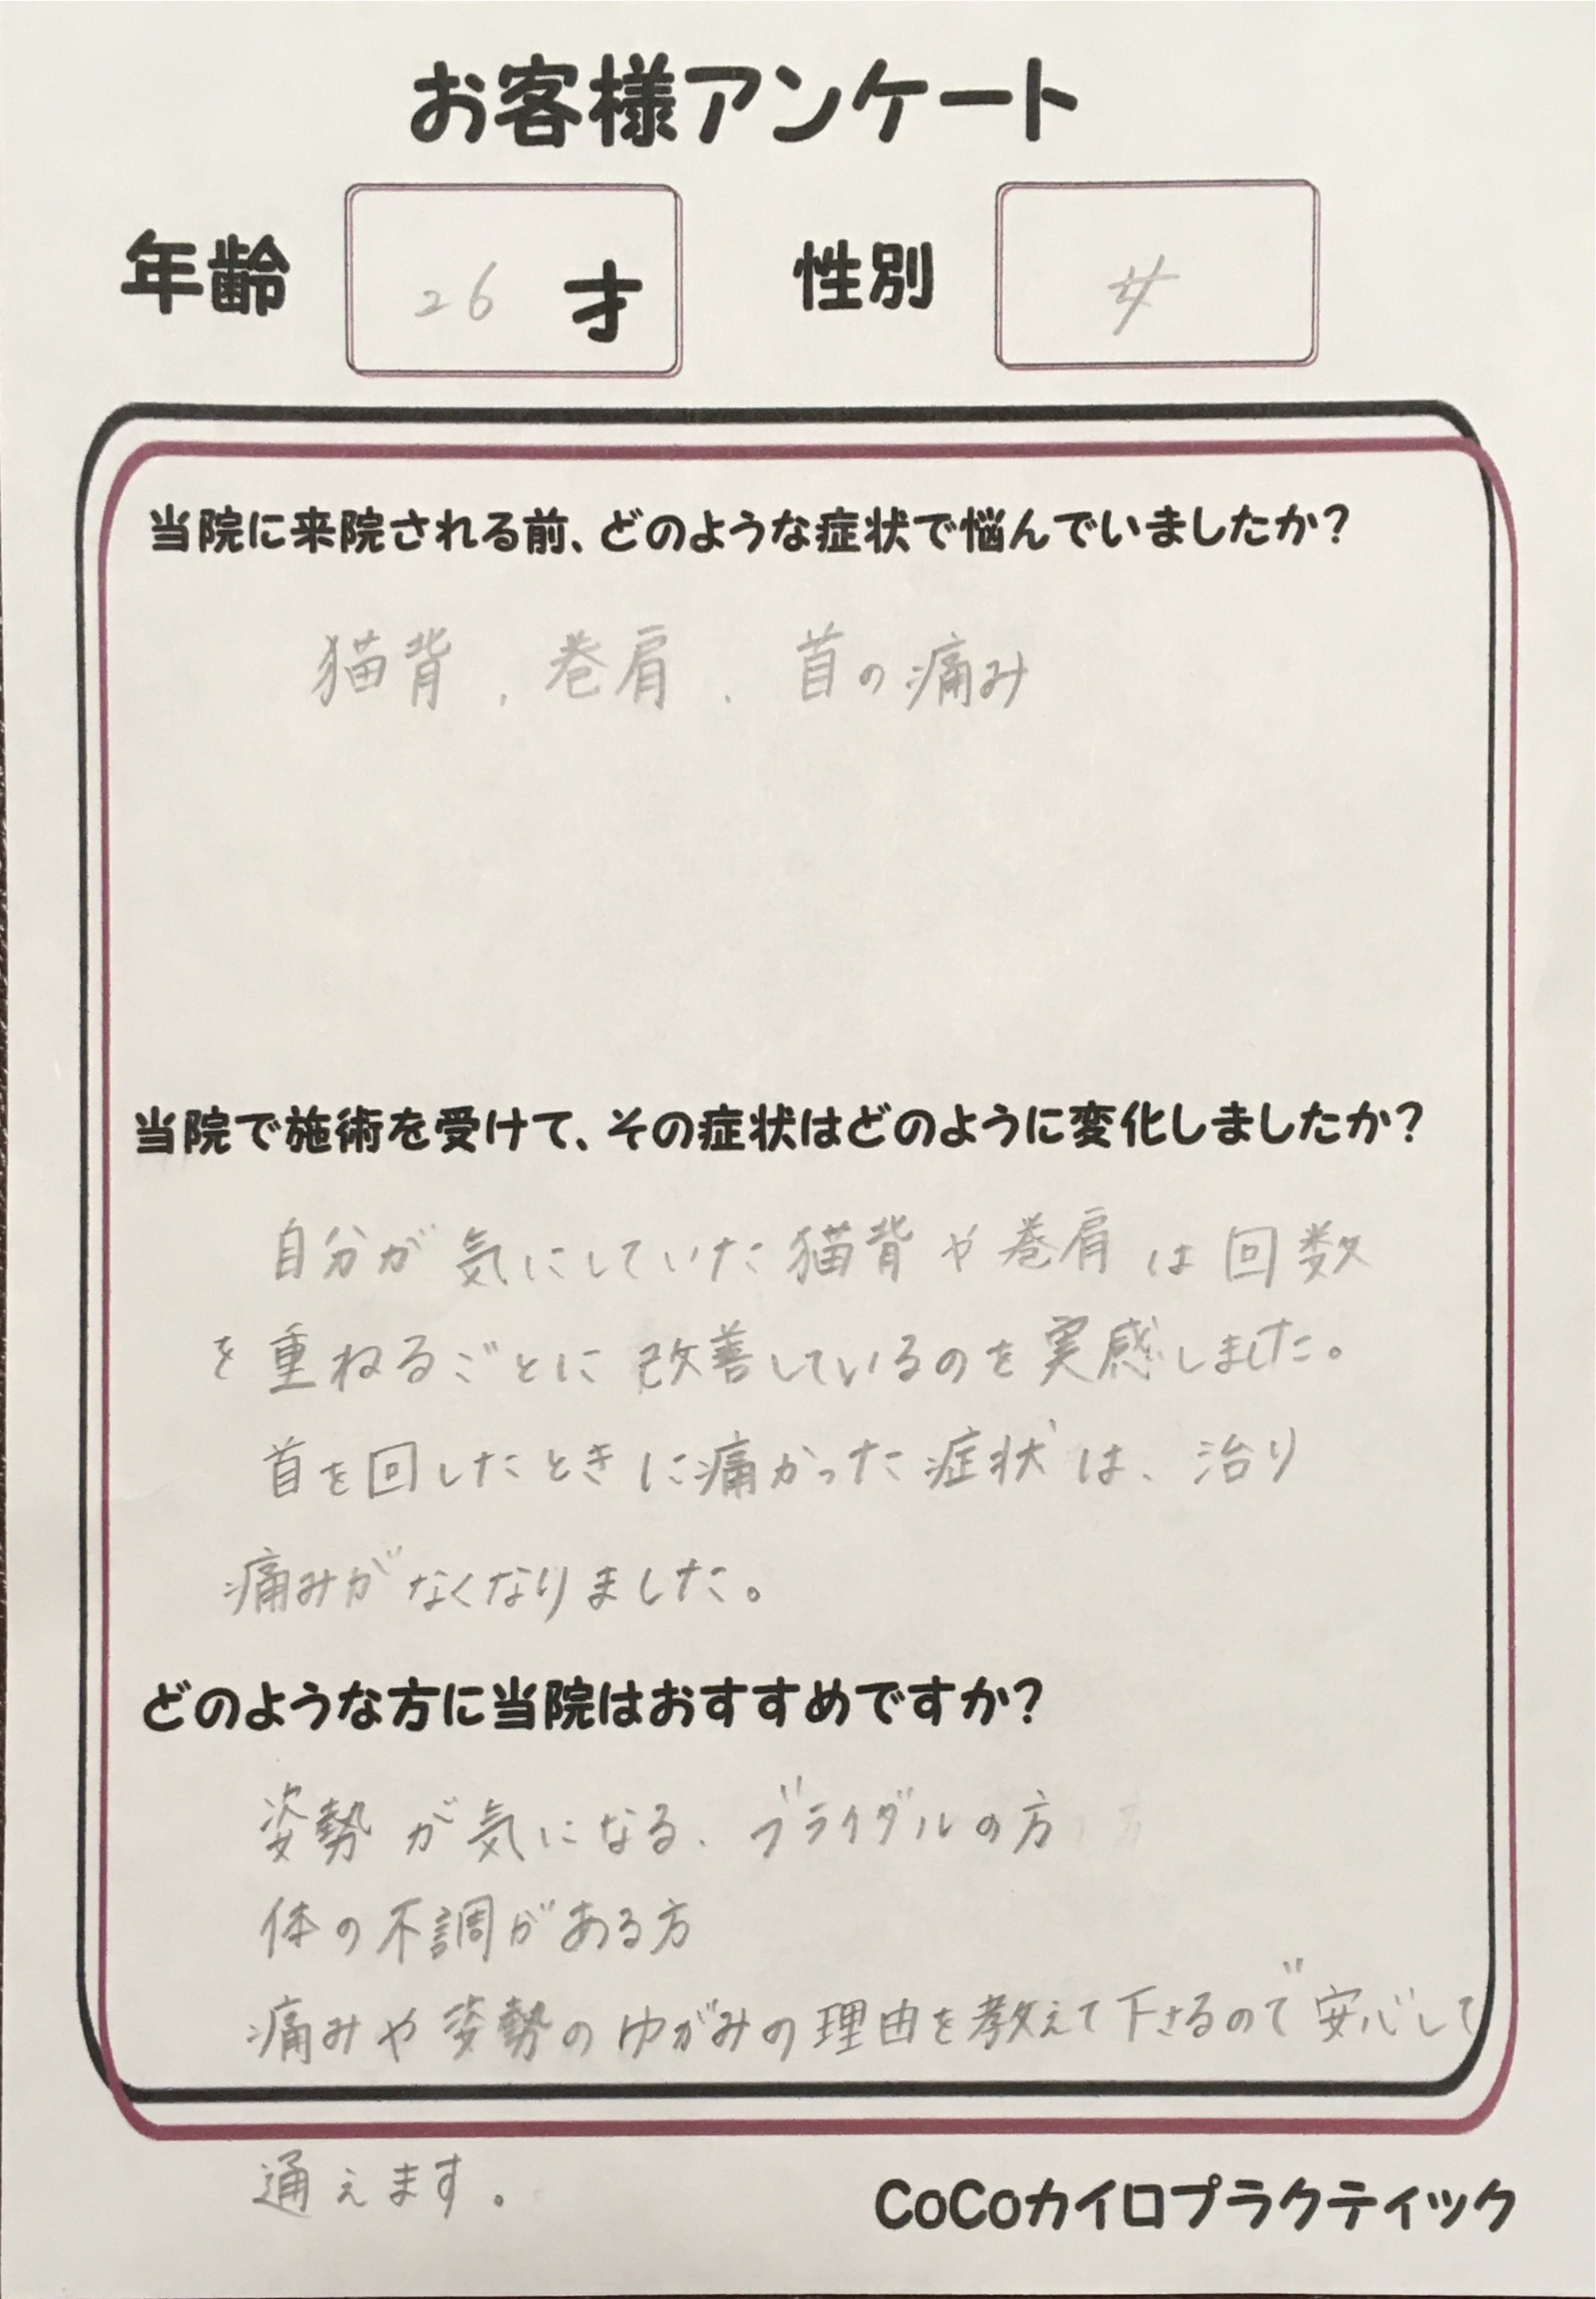 お客様アンケート
年齢 26 才 性別 女
当院に来院される前、どのような症状で悩んでいましたか?
猫背、巻肩、首の痛み
当院で施術を受けて、その症状はどのように変化しましたか?
自分が気にしていた猫背や巻肩は回数
を重ねるごとに改善しているのを実感しました。
首を回したときに痛かった症状は、治り
痛みがなくなりました。
どのような方に当院はおすすめですか?
姿勢が気になる、ブライダルの方
体の不調がある方
痛みや姿勢のゆがみの理由を教えて下さるので安心して
通えます。
CoCoカイロプラクティック